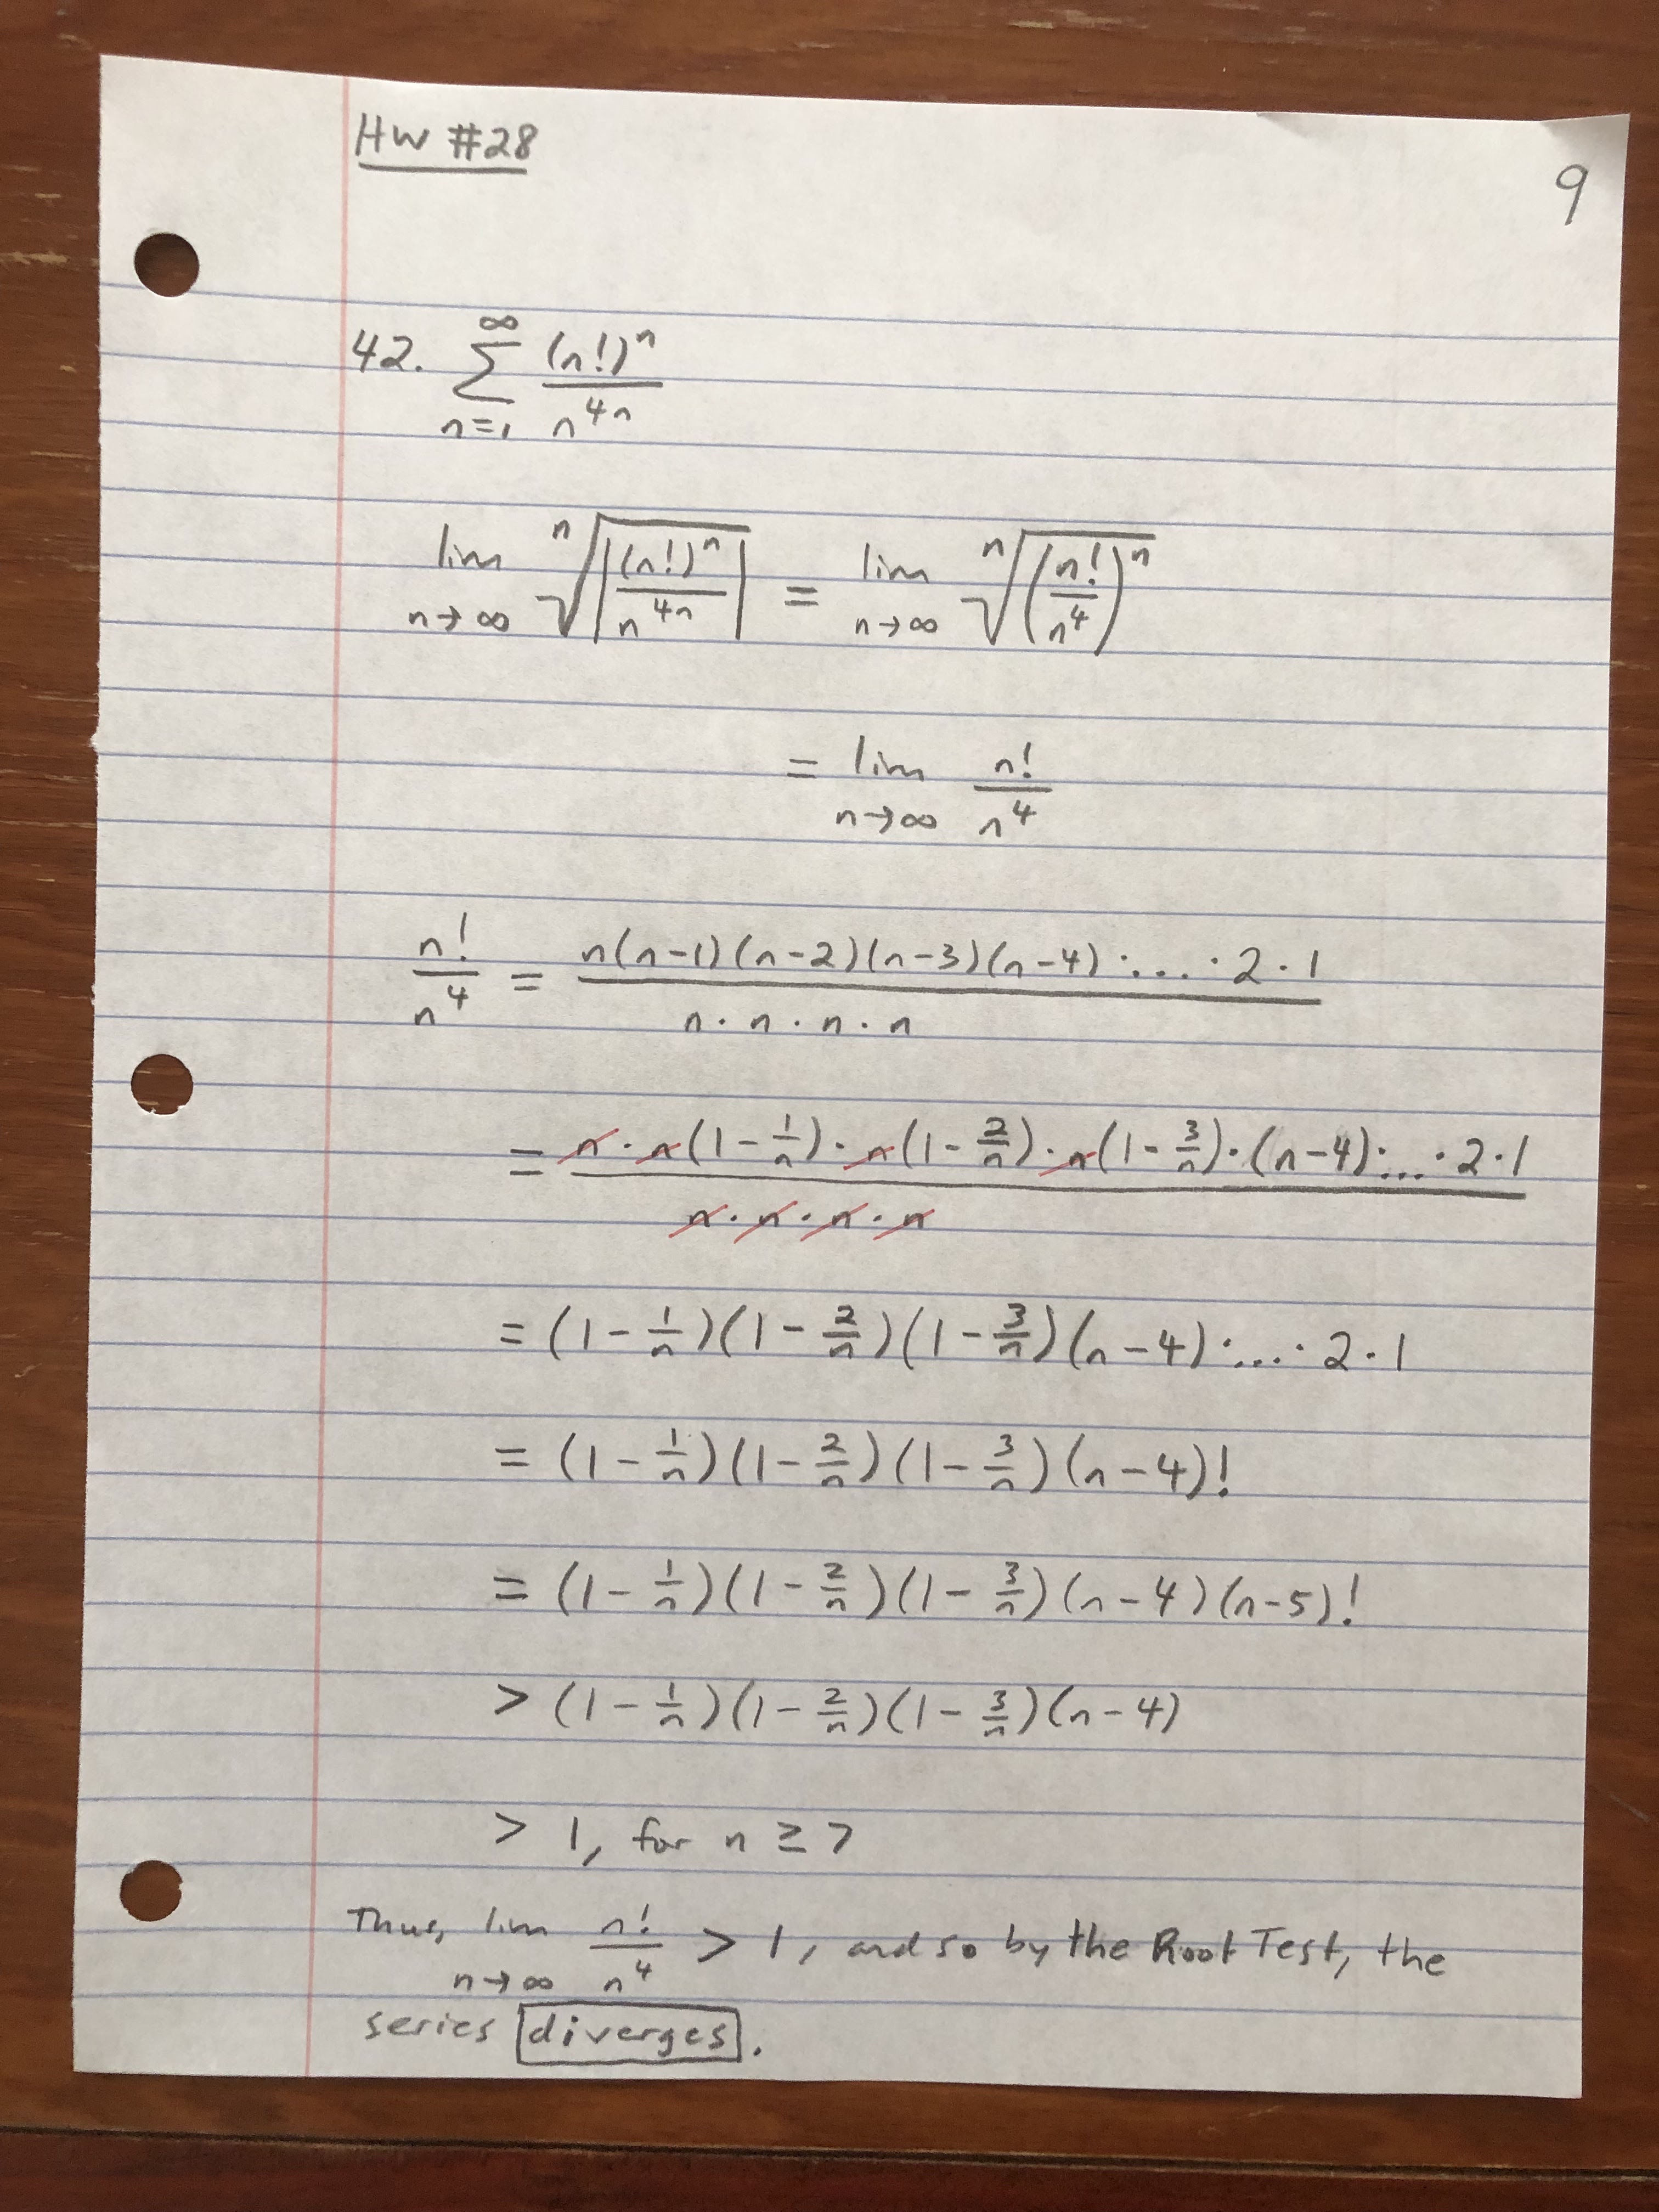 HW #28
9
42. ∑_{n=1}^{∞} (n!)^n / n^{4n}
lim_{n→∞} ⁿ√|(n!)^n / n^{4n}| = lim_{n→∞} ⁿ√(n!/n^4)^n
= lim_{n→∞} n!/n^4
n!/n^4 = n(n-1)(n-2)(n-3)(n-4)·...·2·1 / n·n·n·n
= n·n(1-1/n)·n(1-2/n)·n(1-3/n)·(n-4)·...·2·1 / n·n·n·n
= (1-1/n)(1-2/n)(1-3/n)(n-4)·...·2·1
= (1-1/n)(1-2/n)(1-3/n)(n-4)!
= (1-1/n)(1-2/n)(1-3/n)(n-4)(n-5)!
> (1-1/n)(1-2/n)(1-3/n)(n-4)
> 1, for n ≥ 7
Thus, lim_{n→∞} n!/n^4 > 1, and so by the Root Test, the
series diverges.